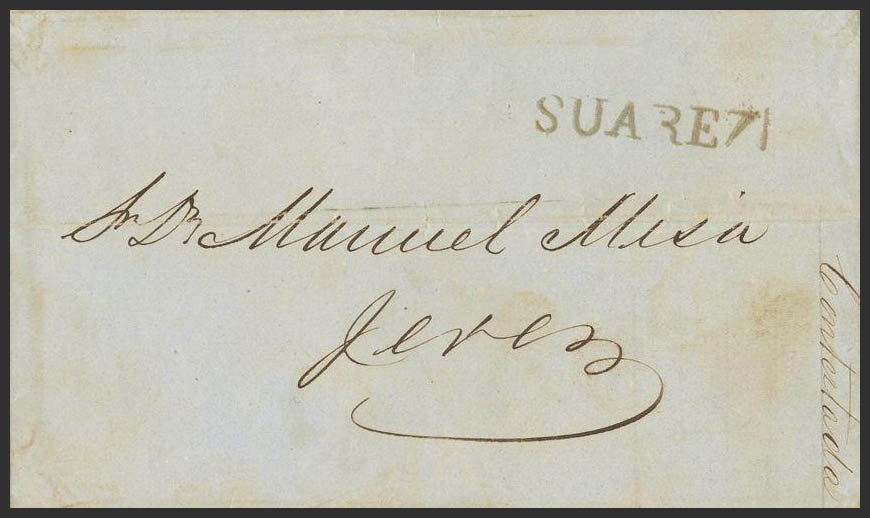 SUAREZ
Sr Dn Manuel Mesa
Jerez
Contestada